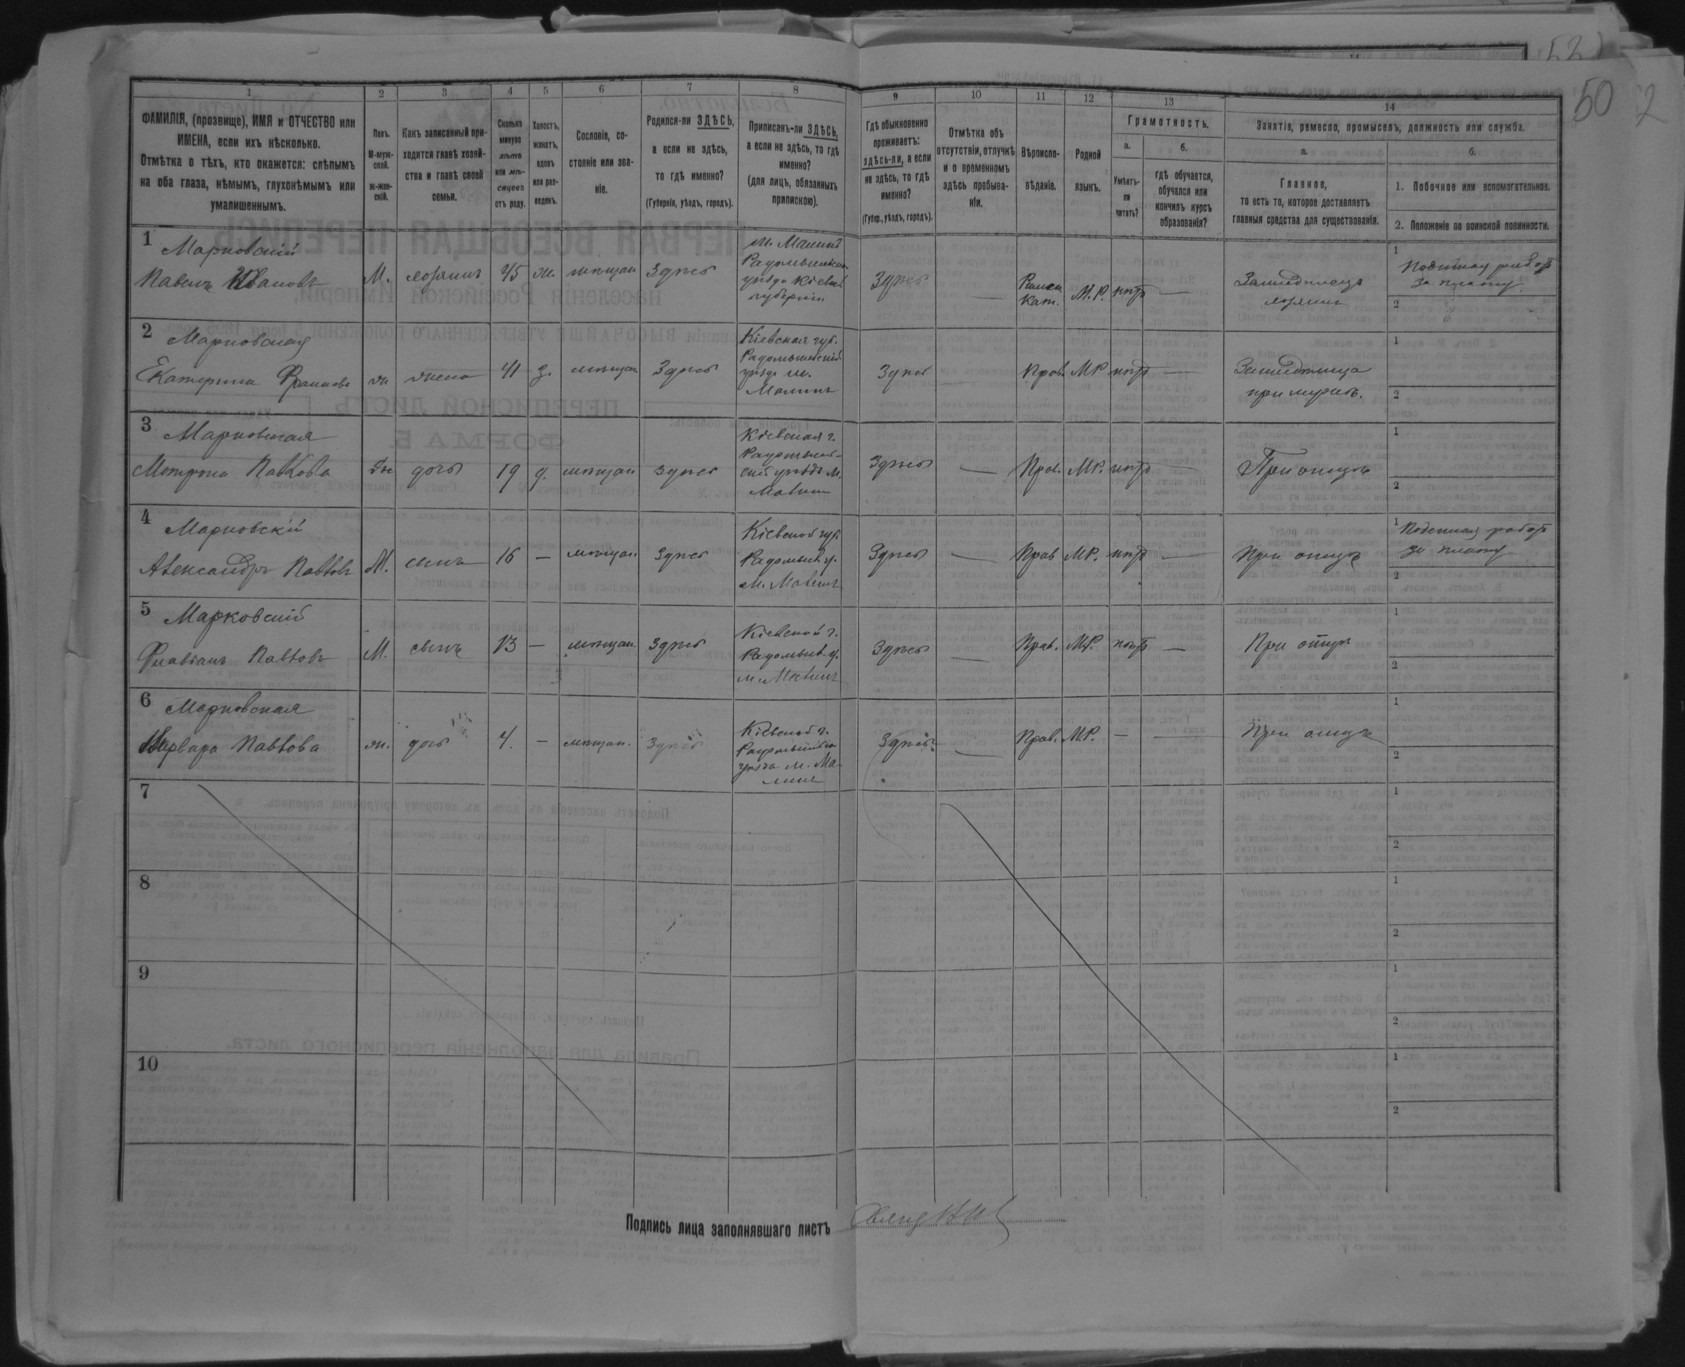 50
1
2
3
4
5
6
7
8
9
10
11
12
13
14
ФАМИЛІЯ, (прозвище), ИМЯ и ОТЧЕСТВО или
ИМЕНА, если ихъ нѣсколько.
Отмѣтка о тѣхъ, кто окажется: слѣпымъ
на оба глаза, нѣмымъ, глухонѣмымъ или
умалишеннымъ.
Полъ.
М-муж-
ской.
ж-жен-
скій.
Какъ записанный при-
ходится главѣ хозяй-
ства и главѣ своей
семьи.
Сколько
минуло
лѣтъ
или мѣ-
сяцевъ
отъ роду.
Холостъ,
женатъ,
вдовъ
или раз-
веденъ.
Сословіе, со-
стояніе или зва-
ніе.
Родился-ли ЗДѢСЬ,
а если не здѣсь,
то гдѣ именно?
(Губернія, уѣздъ, городъ).
Приписанъ-ли ЗДѢСЬ,
а если не здѣсь, то гдѣ
именно?
(для лицъ, обязанныхъ
припискою).
Гдѣ обыкновенно
проживаетъ:
здѣсь-ли, а если
не здѣсь, то гдѣ
именно?
(Губер., уѣздъ, городъ).
Отмѣтка объ
отсутствіи, отлучкѣ
и о временномъ
здѣсь пребыва-
ніи.
Вѣроиспо-
вѣданіе.
Родной
языкъ.
Грамотность.
а.
Умѣетъ-
ли
читать?
б.
гдѣ обучается,
обучался или
кончилъ курсъ
образованія?
Занятія, ремесло, промыселъ, должность или служба.
а.
Главное,
то есть то, которое доставляетъ
главныя средства для существованія.
б.
1. Побочное или вспомогательное.
2. Положеніе по воинской повинности.
1
Марковскій
Павелъ Ивановъ
М.
хозяинъ
45
ж.
мѣщан
Здѣсь
м. Малинъ
Радомысльскаго
уѣзда Кіевск
губерніи
Здѣсь
—
Римск
Кат.
М.Р.
нѣтъ
—
Земледѣлецъ
хозяинъ
1
Поденная работ
за плату
2
2
Марковская
Катерина
ж
жена
41
з.
мѣщан
Здѣсь
Кіевская губ.
Радомысльскій
уѣздъ м.
Малинъ
Здѣсь
—
Прав.
МР
нѣтъ
—
Земледѣлица
при мужѣ.
1
2
3
Марковская
Мотрона Павлова
ж
дочь
19
д.
мѣщан
Здѣсь
Кіевская г.
Радомысль-
скій уѣздъ м.
Малин
Здѣсь
—
Прав.
МР.
нѣтъ
—
При отцѣ
1
2
4
Марковскій
Александръ Павловъ
М.
сынъ
16
—
мѣщан
Здѣсь
Кіевской губ.
Радомысл у.
м. Малинъ
Здѣсь
—
Прав
МР.
нѣтъ
—
При отцѣ
1
Поденная работ
за плату
2
5
Марковскій
Флавіанъ Павловъ
М.
сынъ
13
—
мѣщан
Здѣсь
Кіевской г.
Радомысл у.
м. Малинъ
Здѣсь
—
Прав.
МР.
нѣтъ
—
При отцѣ
1
2
6
Марковская
Варвара Павлова
ж.
дочь
4.
—
мѣщан.
Здѣсь
Кіевской г.
уѣзда м. Ма-
линъ
Здѣсь.
—
Прав.
МР.
—
—
При отцѣ
1
2
7
1
2
8
1
2
9
1
2
10
1
2
Подпись лица заполнявшаго листъ